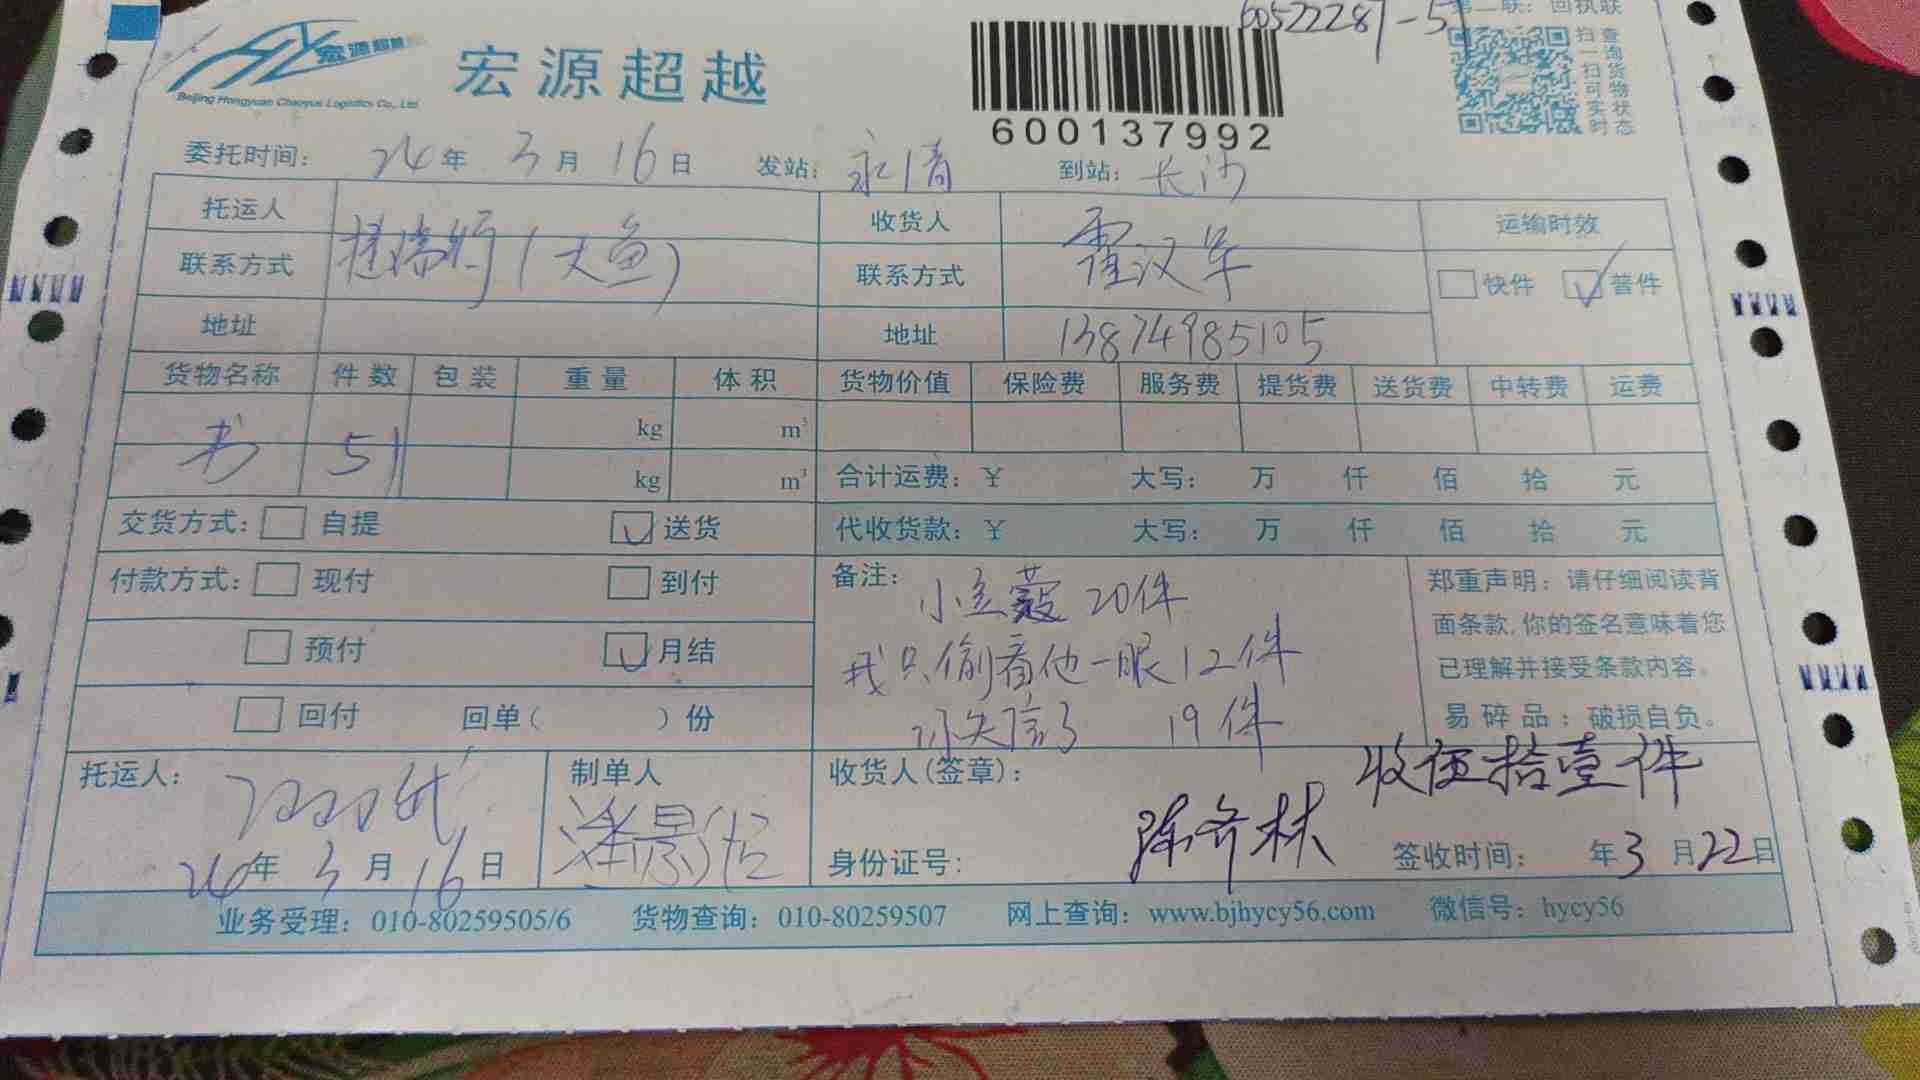 60522287-51
第二联：回执联
宏源超越
Beijing Hongyuan Chaoyue Logistics Co., Ltd
宏源超越
600137992
扫一扫可实时
查询货物状态
委托时间： 24 年 3 月 16 日 发站：永清 到站：长沙
托运人 收货人 运输时效
联系方式 (大鱼) 联系方式 霍汉军 快件 普件
地址 地址 13874985105
货物名称 件数 包装 重量 体积 货物价值 保险费 服务费 提货费 送货费 中转费 运费
kg m³
书 51 kg m³ 合计运费：¥ 大写： 万 仟 佰 拾 元
交货方式： 自提 送货 代收货款：¥ 大写： 万 仟 佰 拾 元
付款方式： 现付 到付
预付 月结
回付 回单( )份
备注： 小豆蔻 20件
我只偷看他一眼 12件
你失信了 19件
郑重声明：请仔细阅读背
面条款,你的签名意味着您
已理解并接受条款内容。
易碎品：破损自负。
托运人： 制单人 收货人(签章)： 收伍拾壹件
24年 3月 16日 身份证号： 陈齐林 签收时间： 年3月22日
业务受理：010-80259505/6 货物查询：010-80259507 网上查询：www.bjhycy56.com 微信号：hycy56